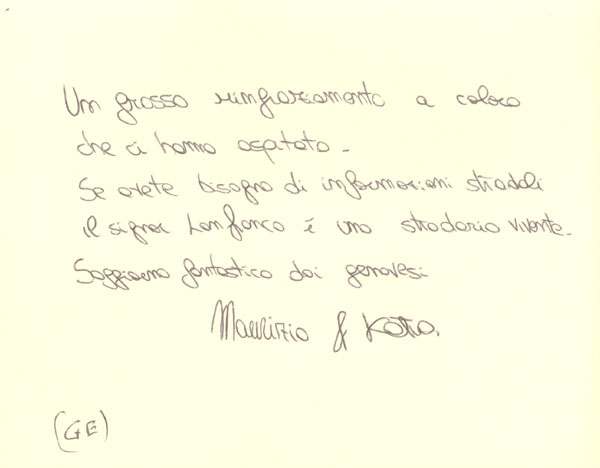 Un grosso ringraziamento a coloro
che ci hanno ospitato -
Se avete bisogno di informazioni stradali
il signor Lanfranco è uno stradario vivente.
Soggiorno fantastico dai genovesi
Maurizio & Katia.
(GE)